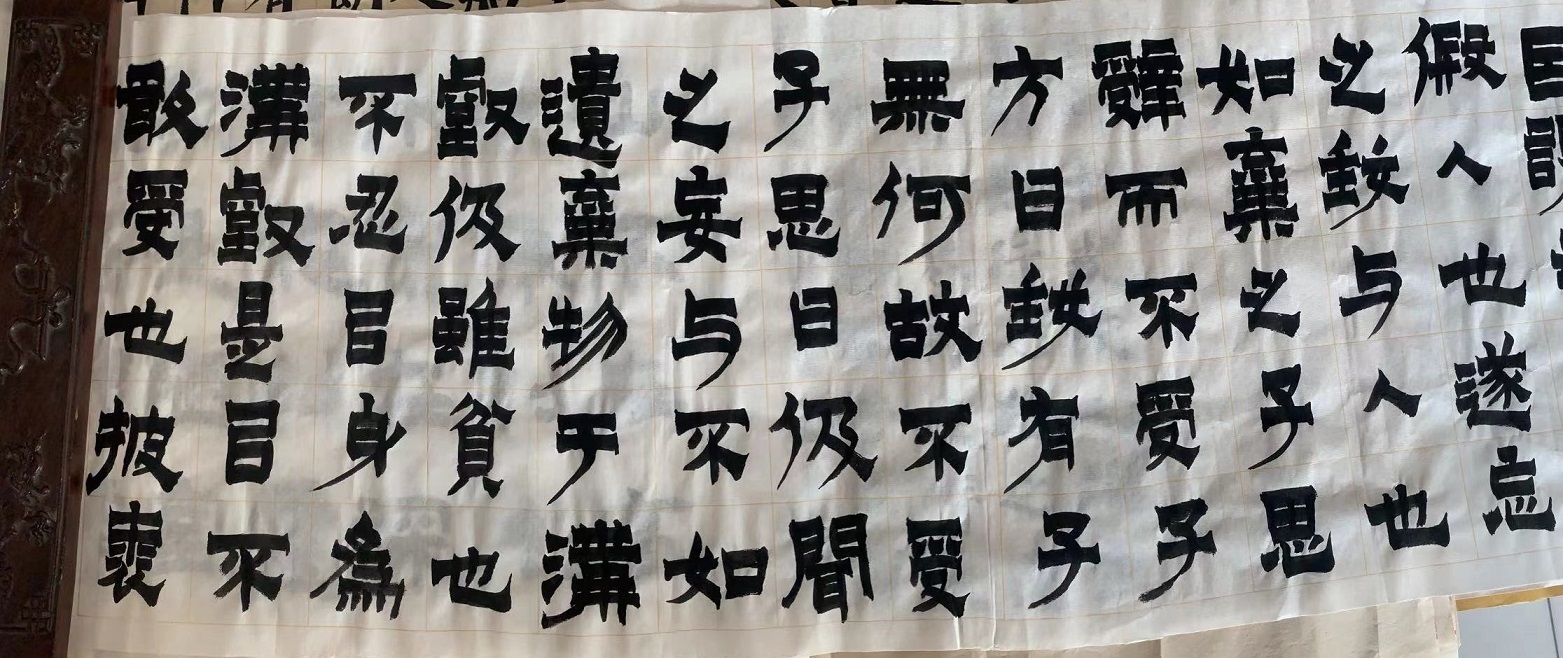 假人也遂忘
之与人也
如棄之子思
辭而不受子
方曰有子
無何故不受
子思曰伋聞
之妄与不如
遺棄物于溝
壑伋雖貧也
不忍目身為
溝壑是目不
敢受也披裘